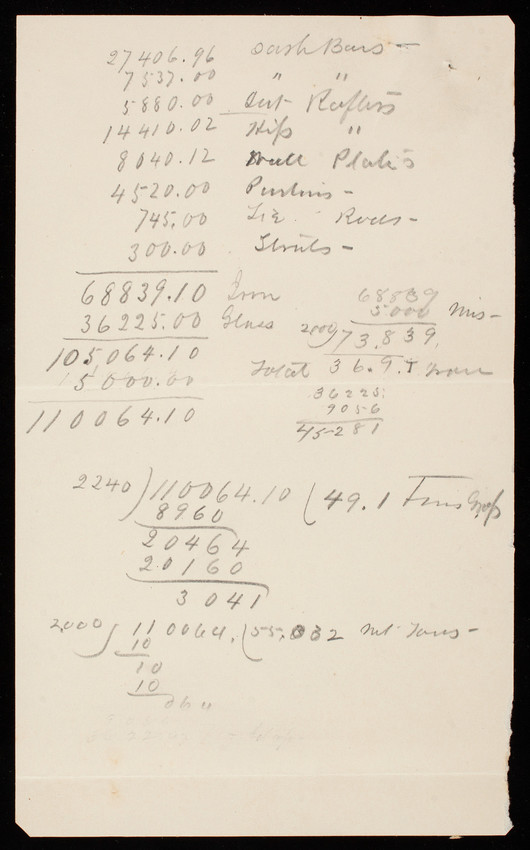 27406.96 Sash Bars -
7537.00 " "
5880.00 Rafters
14410.02 Hip "
8040.12 Wall Plates
4520.00 Purlins -
745.00 Tie Rods -
300.00 Struts -
68839.10 Iron
36225.00 Glass
105,064.10
5000.00
110064.10
68839
5000 Mis-
2000)73.839.
Total 36.9.T Iron
36225.
9056
45281
2240)110064.10(49.1 Tons Gross
8960
20464
20160
3041
2,000)110064.(55.032 Net Tons -
10
10
10
064